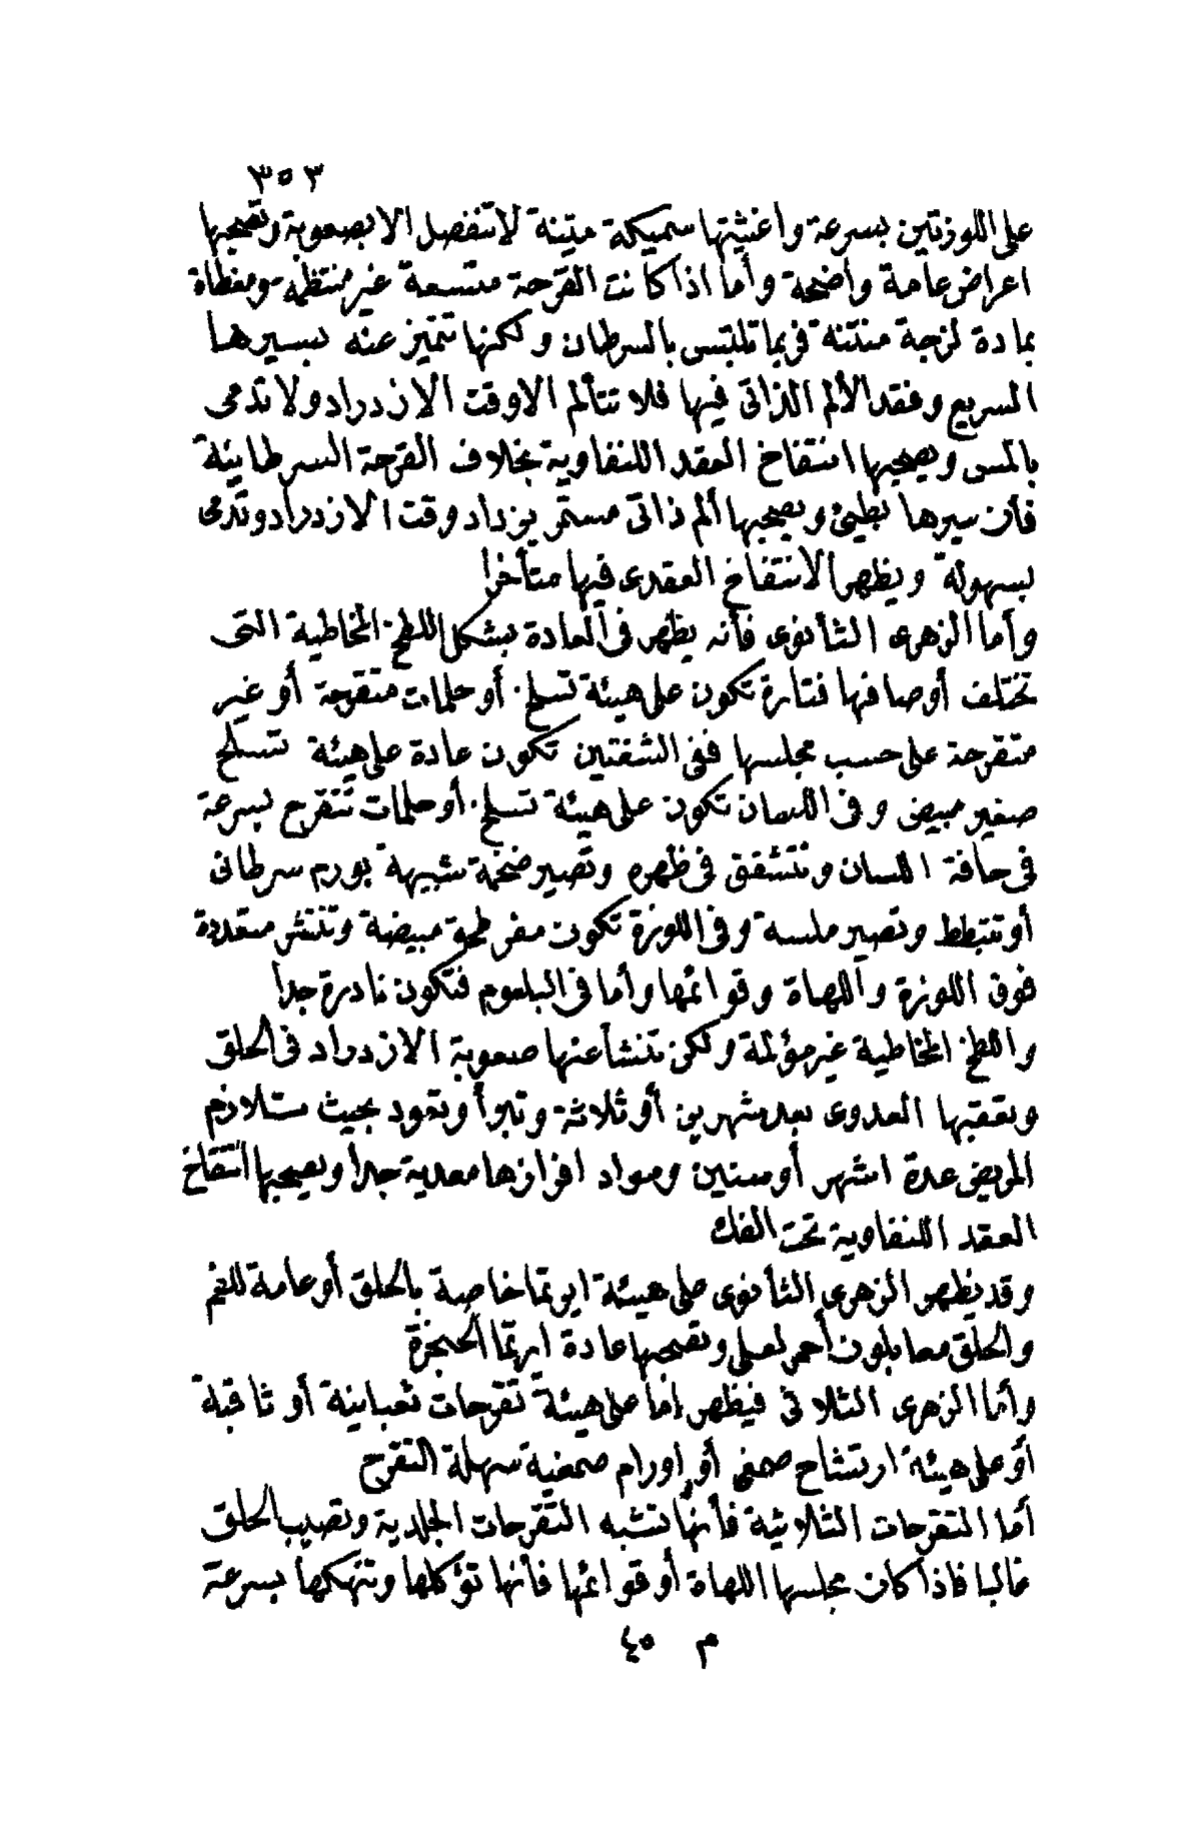 ٣٥٣
على اللوزتين بسرعة واغشيتها سميكة متينة لا تنفصل الا بصعوبة وتصحبها
اعراض عامة واضحة وأما اذا كانت القرحة متسعة غير منتظمة ومغطاة
بمادة لزجة منتنة فربما تلتبس بالسرطان ولكنها تتميز عنه بسيرها
السريع وفقد الألم الذاتى فيها فلا تتألم الا وقت الازدراد ولا تدمى
بالمس ويصحبها انتفاخ العقد اللنفاوية بخلاف القرحة السرطانية
فأن سيرها بطيئ ويصحبها ألم ذاتى مستمر يزداد وقت الازدراد وتدمى
بسهولة ويظهر الانتفاخ العقدى فيها متأخرا
وأما الزهرى الثأنوى فأنه يظهر فى العادة بشكل اللطخ المخاطية التى
تختلف أوصافها فتارة تكون على هيئة تسلخ أو حلمات متقرحة أو غير
متقرحة على حسب مجلسها ففى الشفتين تكون عادة على هيئة تسلخ
صغير مبيض وفى اللسان تكون على هيئة تسلخ أو حلمات تتقرح بسرعة
فى حافة اللسان وتتشقق فى ظهره وتصير ضخمة شبيهة بورم سرطانى
أو تتبطط وتصير ملسة وفى اللوزة تكون مفرطحة مبيضة وتنتشر متعددة
فوق اللوزة واللهاة وقوائمها وأما فى البلعوم فتكون نادرة جدا
واللطخ المخاطية غير مؤلمة ولكن تنشأ عنها صعوبة الازدراد فى الحلق
وتعقبها العدوى بعد شهرين أو ثلاثة وتبرأ وتعود بحيث ستلازم
المريض عدة اشهر أو سنين ومواد افرازها معدية جدا ويصحبها انتفاخ
العقد اللنفاوية تحت الفك
وقد يظهر الزهرى الثأنوى على هيئة ايريتما خاصة بالحلق أو عامة للفم
والحلق معا بلون أحمر لعلى وتصحبها عادة اريتما الحنجرة
وأما الزهرى الثلاثى فيظهر إما على هيئة تقرحات ثعبانية أو ثاقبة
أو على هيئة ارتشاح صمغى أو اورام صمغية سهلة التقرح
أما التقرحات الثلاثية فأنها تشبه التقرحات الجلدية وتصيب الحلق
غالبا فاذا كان مجلسها اللهاة أو قوائمها فأنها تؤكلها وتنهكها بسرعة
م ٤٥